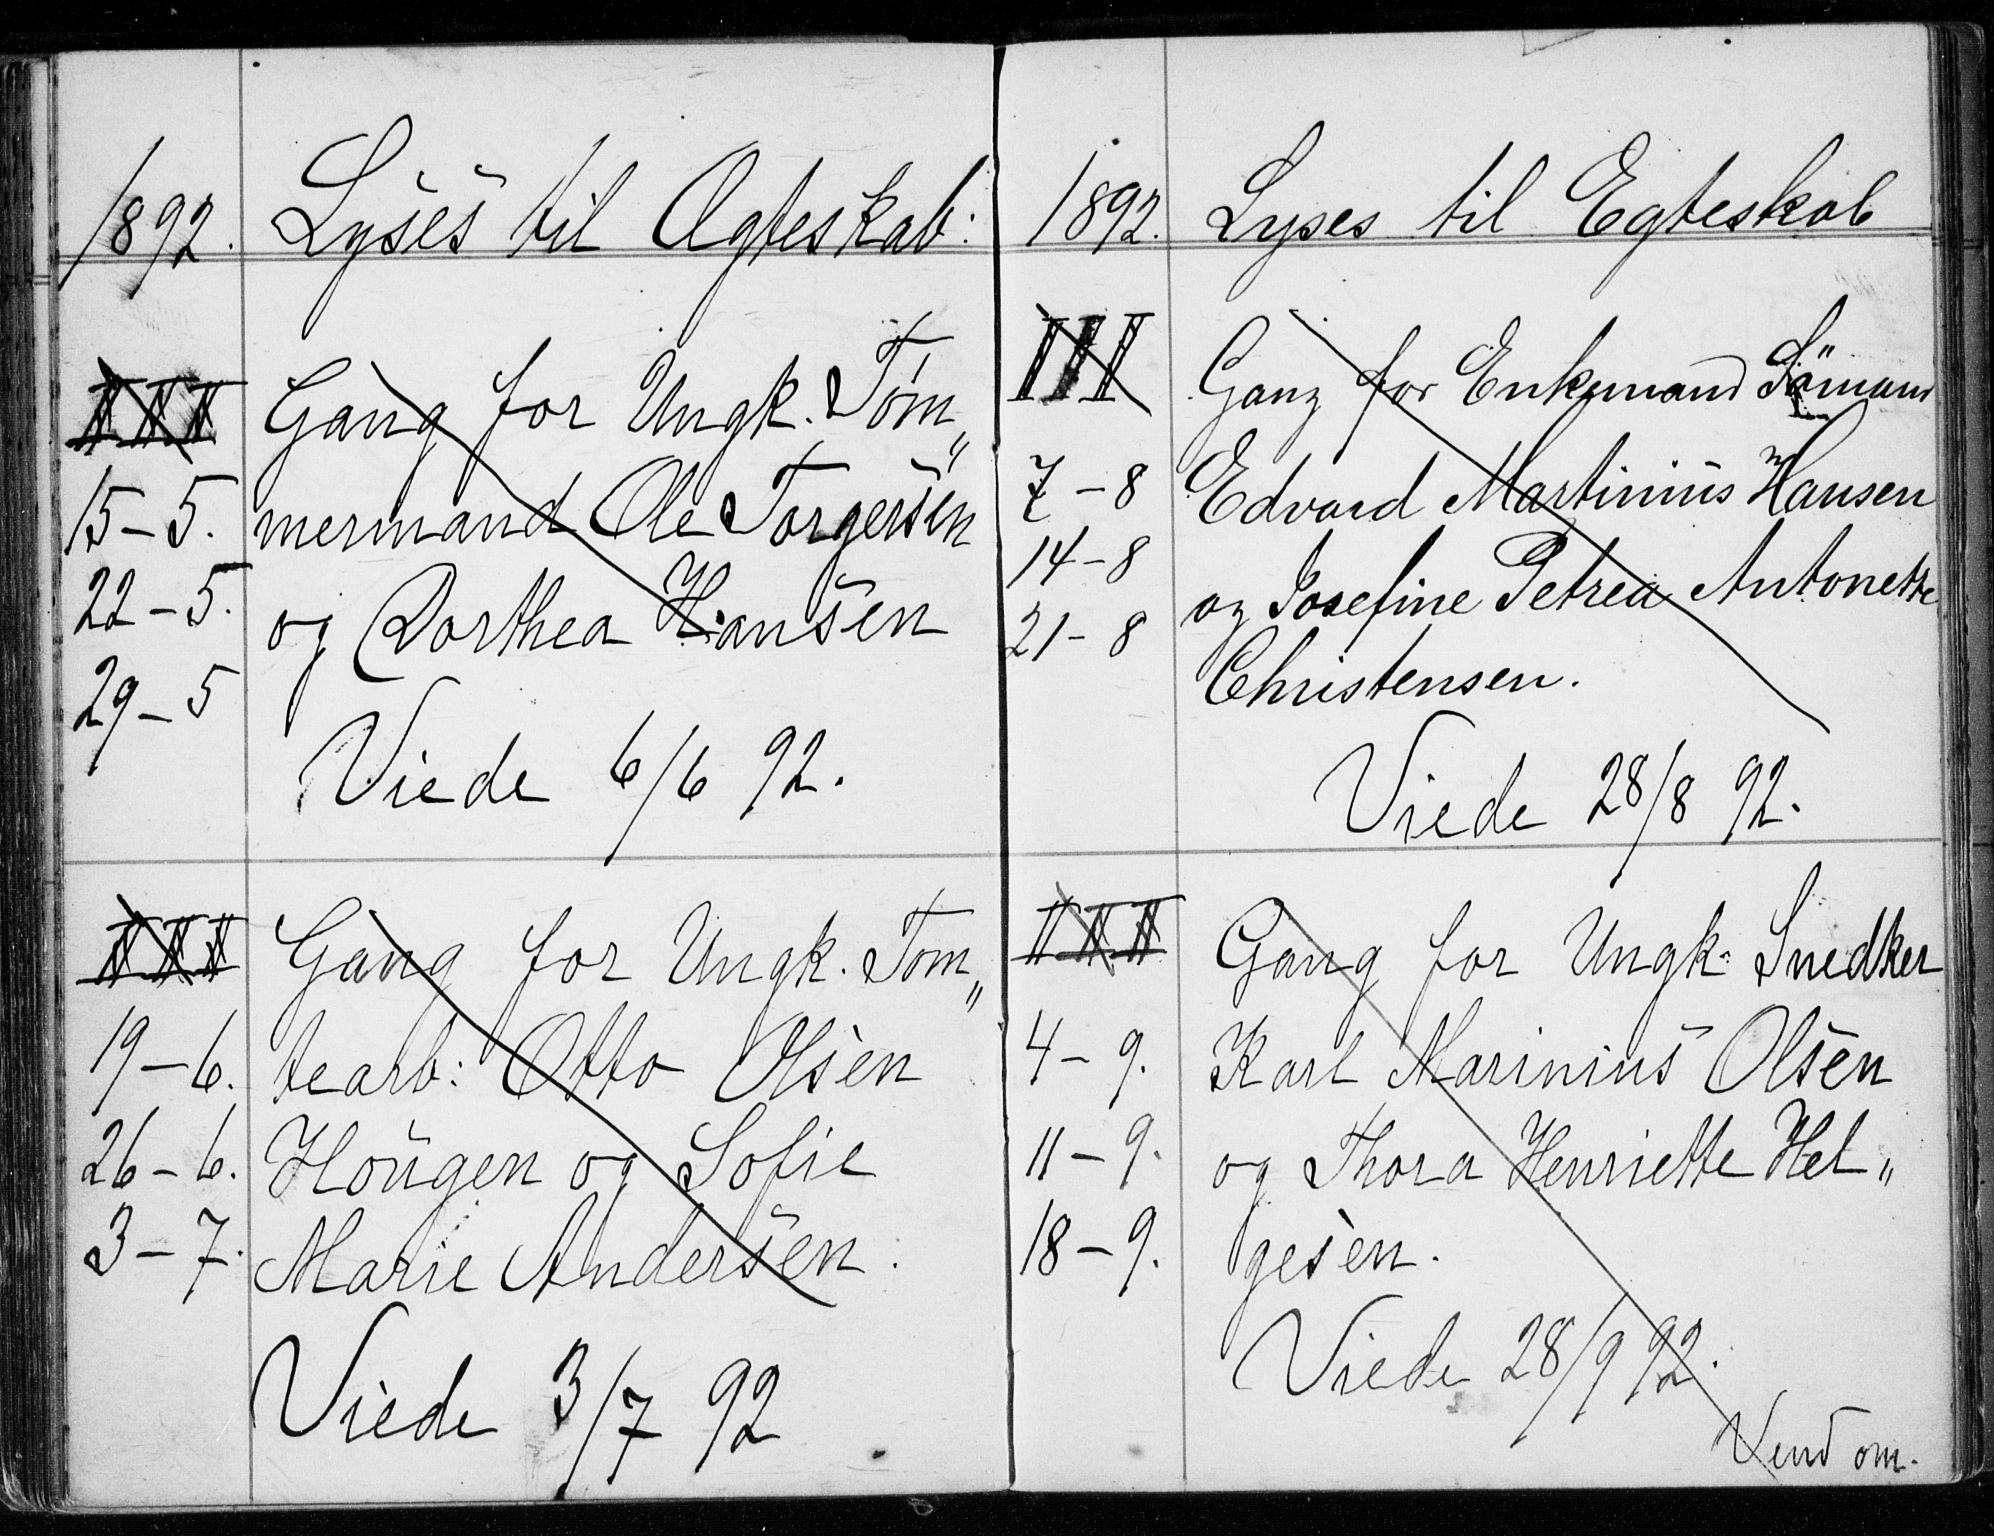 1892. Lyses til Ægteskab:
III Gang for Ungk. Töm„
15-5. mermand Ole Torgersen
22-5. og Dorthea Hansen
29-5
Viede 6/6 92.
III Gang for Ungk. Tom„
19-6. tearb: Otto Olsen
26-6. Hougen og Sofie
3-7. Marie Andersen.
Viede 3/7 92
1892. Lyses til Egteskab
III Gang for Enkemand Sömand
7-8 Edvard Martinius Hansen
14-8 og Josefine Petrea Antonette
21-8 Christensen.
Viede 28/8 92.
III Gang for Ungk. Snedker
4-9. Karl Marinius Olsen
11-9. og Thora Henriette Hel„
18-9. gesen.
Viede 28/9 92.
Vend om.